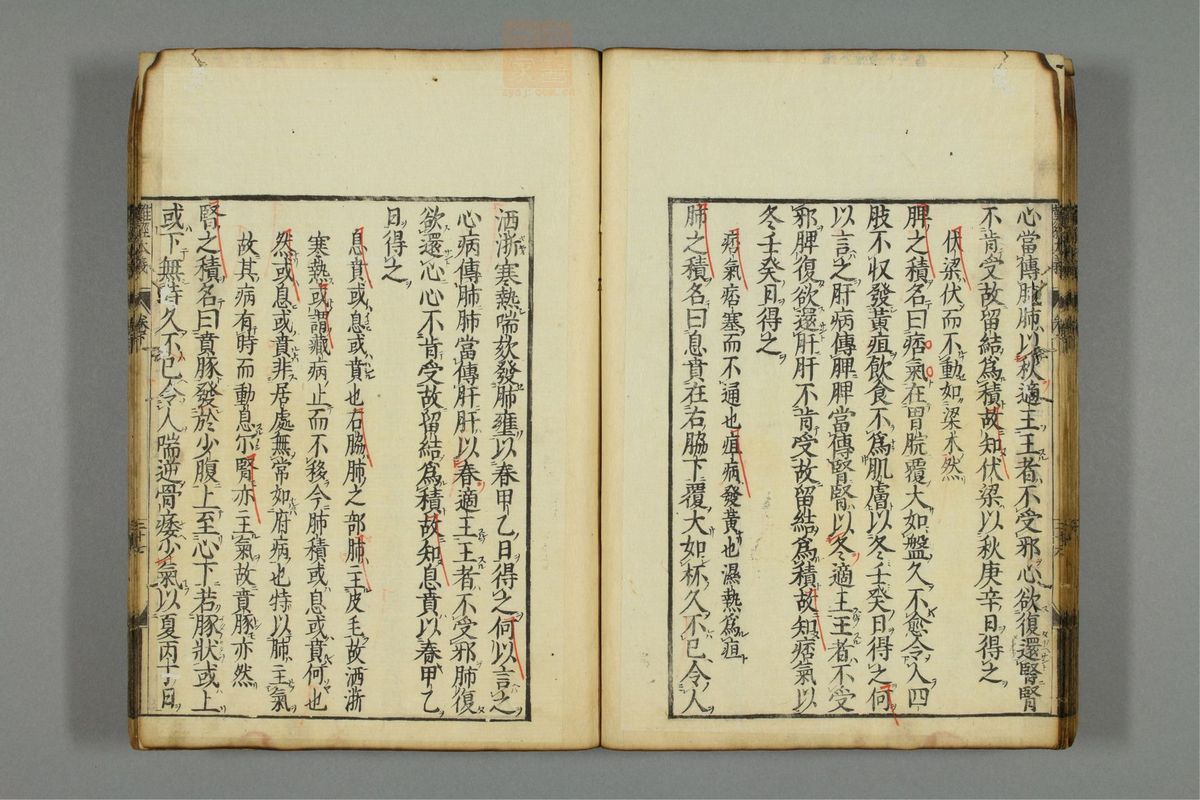 心當傳肺肺以秋適王王者不受邪心欲復還腎腎
不肯受故留結爲積故知伏梁以秋庚辛日得之
伏梁伏而不動如梁木然
脾之積名曰痞氣在胃脘覆大如盤久不愈令人四
肢不收發黃疸飲食不爲肌膚以冬壬癸日得之何
以言之肝病傳脾脾當傳腎腎以冬適王王者不受
邪脾復欲還肝肝不肯受故留結爲積故知痞氣以
冬壬癸日得之
痞氣痞塞而不通也疸病發黃也濕熱爲疸
肺之積名曰息賁在右脇下覆大如杯久不已令人
洒淅寒熱喘欬發肺壅以春甲乙日得之何以言之
心病傳肺肺當傳肝肝以春適王王者不受邪肺復
欲還心心不肯受故留結爲積故知息賁以春甲乙
日得之
息賁或息或賁也右脇肺之部肺主皮毛故洒淅
寒熱或謂藏病止而不移今肺積或息或賁何也
然或息或賁非居處無常如府病也特以肺主氣
故其病有時而動息尓腎亦主氣故賁豚亦然
腎之積名曰賁豚發於少腹上至心下若豚狀或上
或下無時久不已令人喘逆骨痿少氣以夏丙丁日